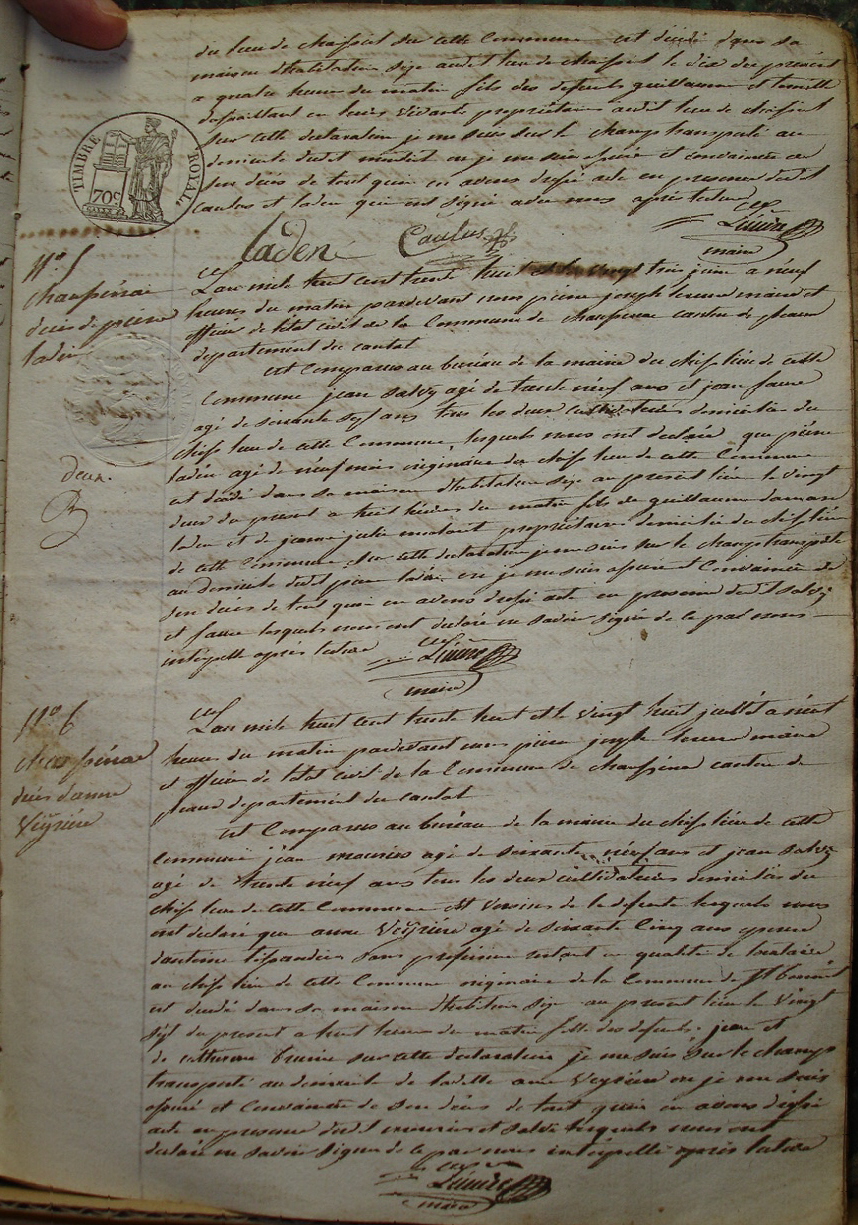 du lieu de chassiol de cette Commune est décédé dans sa
maison d'habitation size audit lieu de le dix du présent
a quatre heures du matin fils des defunts guillaume et
en leurs vivants propriétaires audit lieu de
sur cette déclaration je me suis sur le champs transporté au
domicile dudit ou je me suis assuré et convaincu de
son déces de tout quoi en avons dressé acte en presence dudit
Caulus et laden qui ont signé avec nous après lecture
TIMBRE ROYAL
70c
laden Caulus
maire
N° 5
deces de pierre
laden
L'an mile huit cent trente huit et le vingt trois juin a neuf
heures du matin pardevant nous pierre joseph maire et
officier de létat civil de la Commune de canton de pleaux
departement du cantal
est Comparus au bureau de la mairie du cheflieu de cette
Commune jean salvy agé de trente neuf ans et jean faure
agé de soixante sept ans tous les deux cultivateurs domiciliés du
chef lieu de cette Commune lesquels nous ont déclaré que pierre
laden agé de neuf mois originaire du cheflieu de cette Commune
est décédé dans sa maison d'habitation size au present lieu le vingt
deux du present a huit heures du matin fils de guillaume
laden et de jeanne julie propriétaires domiciliés du cheflieu
de cette Commune sur cette déclaration je me suis sur le champ transporté
au domicile dudit pierre laden ou je me suis assuré et Convaincu de
son déces de tout quoi en avons dressé acte en presence dudit salvy
et faure lesquels nous ont déclaré ne savoir signer de ce par nous
interpellé après lecture
maire
deux.
N° 6
deces danne
Veyrière
L'an mile huit cent trente huit et le vingt huit juillet a neuf
heures du matin pardevant nous pierre joseph maire
et officier de létat civil de la Commune de canton de
pleaux departement du cantal
est Comparus au bureau de la mairie du cheflieu de cette
Commune jean mouries agé de soixante neuf ans et jean salvy
agé de trente neuf ans tous les deux cultivateurs domiciliés du
chef lieu de cette Commune et voisins de la defunte lesquels nous
ont declaré que anne Veyrière agé de soixante Cinq ans epouse
dantoine sans profession restant en qualité de locataire
au cheflieu de cette Commune originaire de la Commune de St
est décédé dans sa maison d'habitation size au present lieu le Vingt
sept du present a huit heures du matin fille des defunts jean et
de catherine sur cette déclaration je me suis sur le champs
transporté au domicile de ladite anne Veyrière ou je me suis
assuré et Convaincu de son déces de tout quoi en avons dressé
acte en presence dudit mouries et salvy lesquels nous ont
déclaré ne savoir signer de ce par nous interpellé après lecture
maire